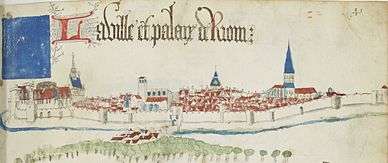 La ville et palays de Riom :